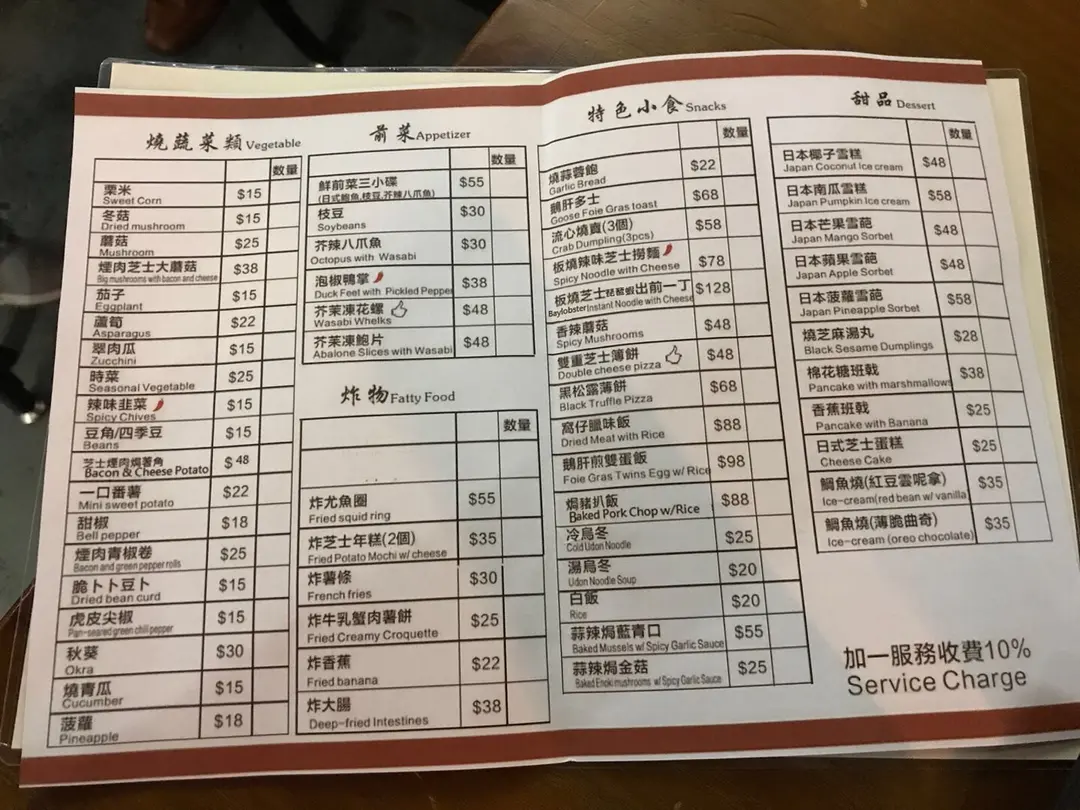 燒蔬菜類 Vegetable
數量
粟米 $15
Sweet Corn
冬菇 $15
Dried mushroom
蘑菇 $25
Mushroom
煙肉芝士大蘑菇 $38
Big mushrooms with bacon and cheese
茄子 $15
Eggplant
蘆筍 $22
Asparagus
翠肉瓜 $15
Zucchini
時菜 $25
Seasonal Vegetable
辣味韭菜 $15
Spicy Chives
豆角/四季豆 $15
Beans
芝士煙肉焗薯角 $48
Bacon & Cheese Potato
一口番薯 $22
Mini sweet potato
甜椒 $18
Bell pepper
煙肉青椒卷 $25
Bacon and green pepper rolls
脆卜卜豆卜 $15
Dried bean curd
虎皮尖椒 $15
Pan-seared green chili pepper
秋葵 $30
Okra
燒青瓜 $15
Cucumber
菠蘿 $18
Pineapple
前菜 Appetizer
數量
鮮前菜三小碟 $55
(日式鮑魚,枝豆,芥辣八爪魚)
枝豆 $30
Soybeans
芥辣八爪魚 $30
Octopus with Wasabi
泡椒鴨掌 $38
Duck Feet with Pickled Pepper
芥茉凍花螺 $48
Wasabi Whelks
芥茉凍鮑片 $48
Abalone Slices with Wasabi
炸物 Fatty Food
數量
炸尤魚圈 $55
Fried squid ring
炸芝士年糕(2個) $35
Fried Potato Mochi w/ cheese
炸薯條 $30
French fries
炸牛乳蟹肉薯餅 $25
Fried Creamy Croquette
炸香蕉 $22
Fried banana
炸大腸 $38
Deep-fried Intestines
特色小食 Snacks
數量
燒蒜蓉鮑 $22
Garlic Bread
鵝肝多士 $68
Goose Foie Gras toast
流心燒賣(3個) $58
Crab Dumpling(3pcs)
板燒辣味芝士撈麵 $78
Spicy Noodle with Cheese
板燒芝士琵琶蝦出前一丁 $128
Baylobster Instant Noodle with Cheese
香辣蘑菇 $48
Spicy Mushrooms
雙重芝士簿餅 $48
Double cheese pizza
黑松露薄餅 $68
Black Truffle Pizza
窩仔臘味飯 $88
Dried Meat with Rice
鵝肝煎雙蛋飯 $98
Foie Gras Twins Egg w/ Rice
焗豬扒飯 $88
Baked Pork Chop w/Rice
冷烏冬 $25
Cold Udon Noodle
湯烏冬 $20
Udon Noodle Soup
白飯 $20
Rice
蒜辣焗藍青口 $55
Baked Mussels w/ Spicy Garlic Sauce
蒜辣焗金菇 $25
Baked Enoki mushrooms w/ Spicy Garlic Sauce
甜品 Dessert
數量
日本椰子雪糕 $48
Japan Coconut Ice cream
日本南瓜雪糕 $58
Japan Pumpkin Ice cream
日本芒果雪葩 $48
Japan Mango Sorbet
日本蘋果雪葩 $48
Japan Apple Sorbet
日本菠蘿雪葩 $58
Japan Pineapple Sorbet
燒芝麻湯丸 $28
Black Sesame Dumplings
棉花糖班戟 $38
Pancake with marshmallows
香蕉班戟 $25
Pancake with Banana
日式芝士蛋糕 $25
Cheese Cake
鯛魚燒(紅豆雲呢拿) $35
Ice-cream(red bean w/ vanilla
鯛魚燒(薄脆曲奇) $35
Ice-cream (oreo chocolate)
加一服務收費10%
Service Charge